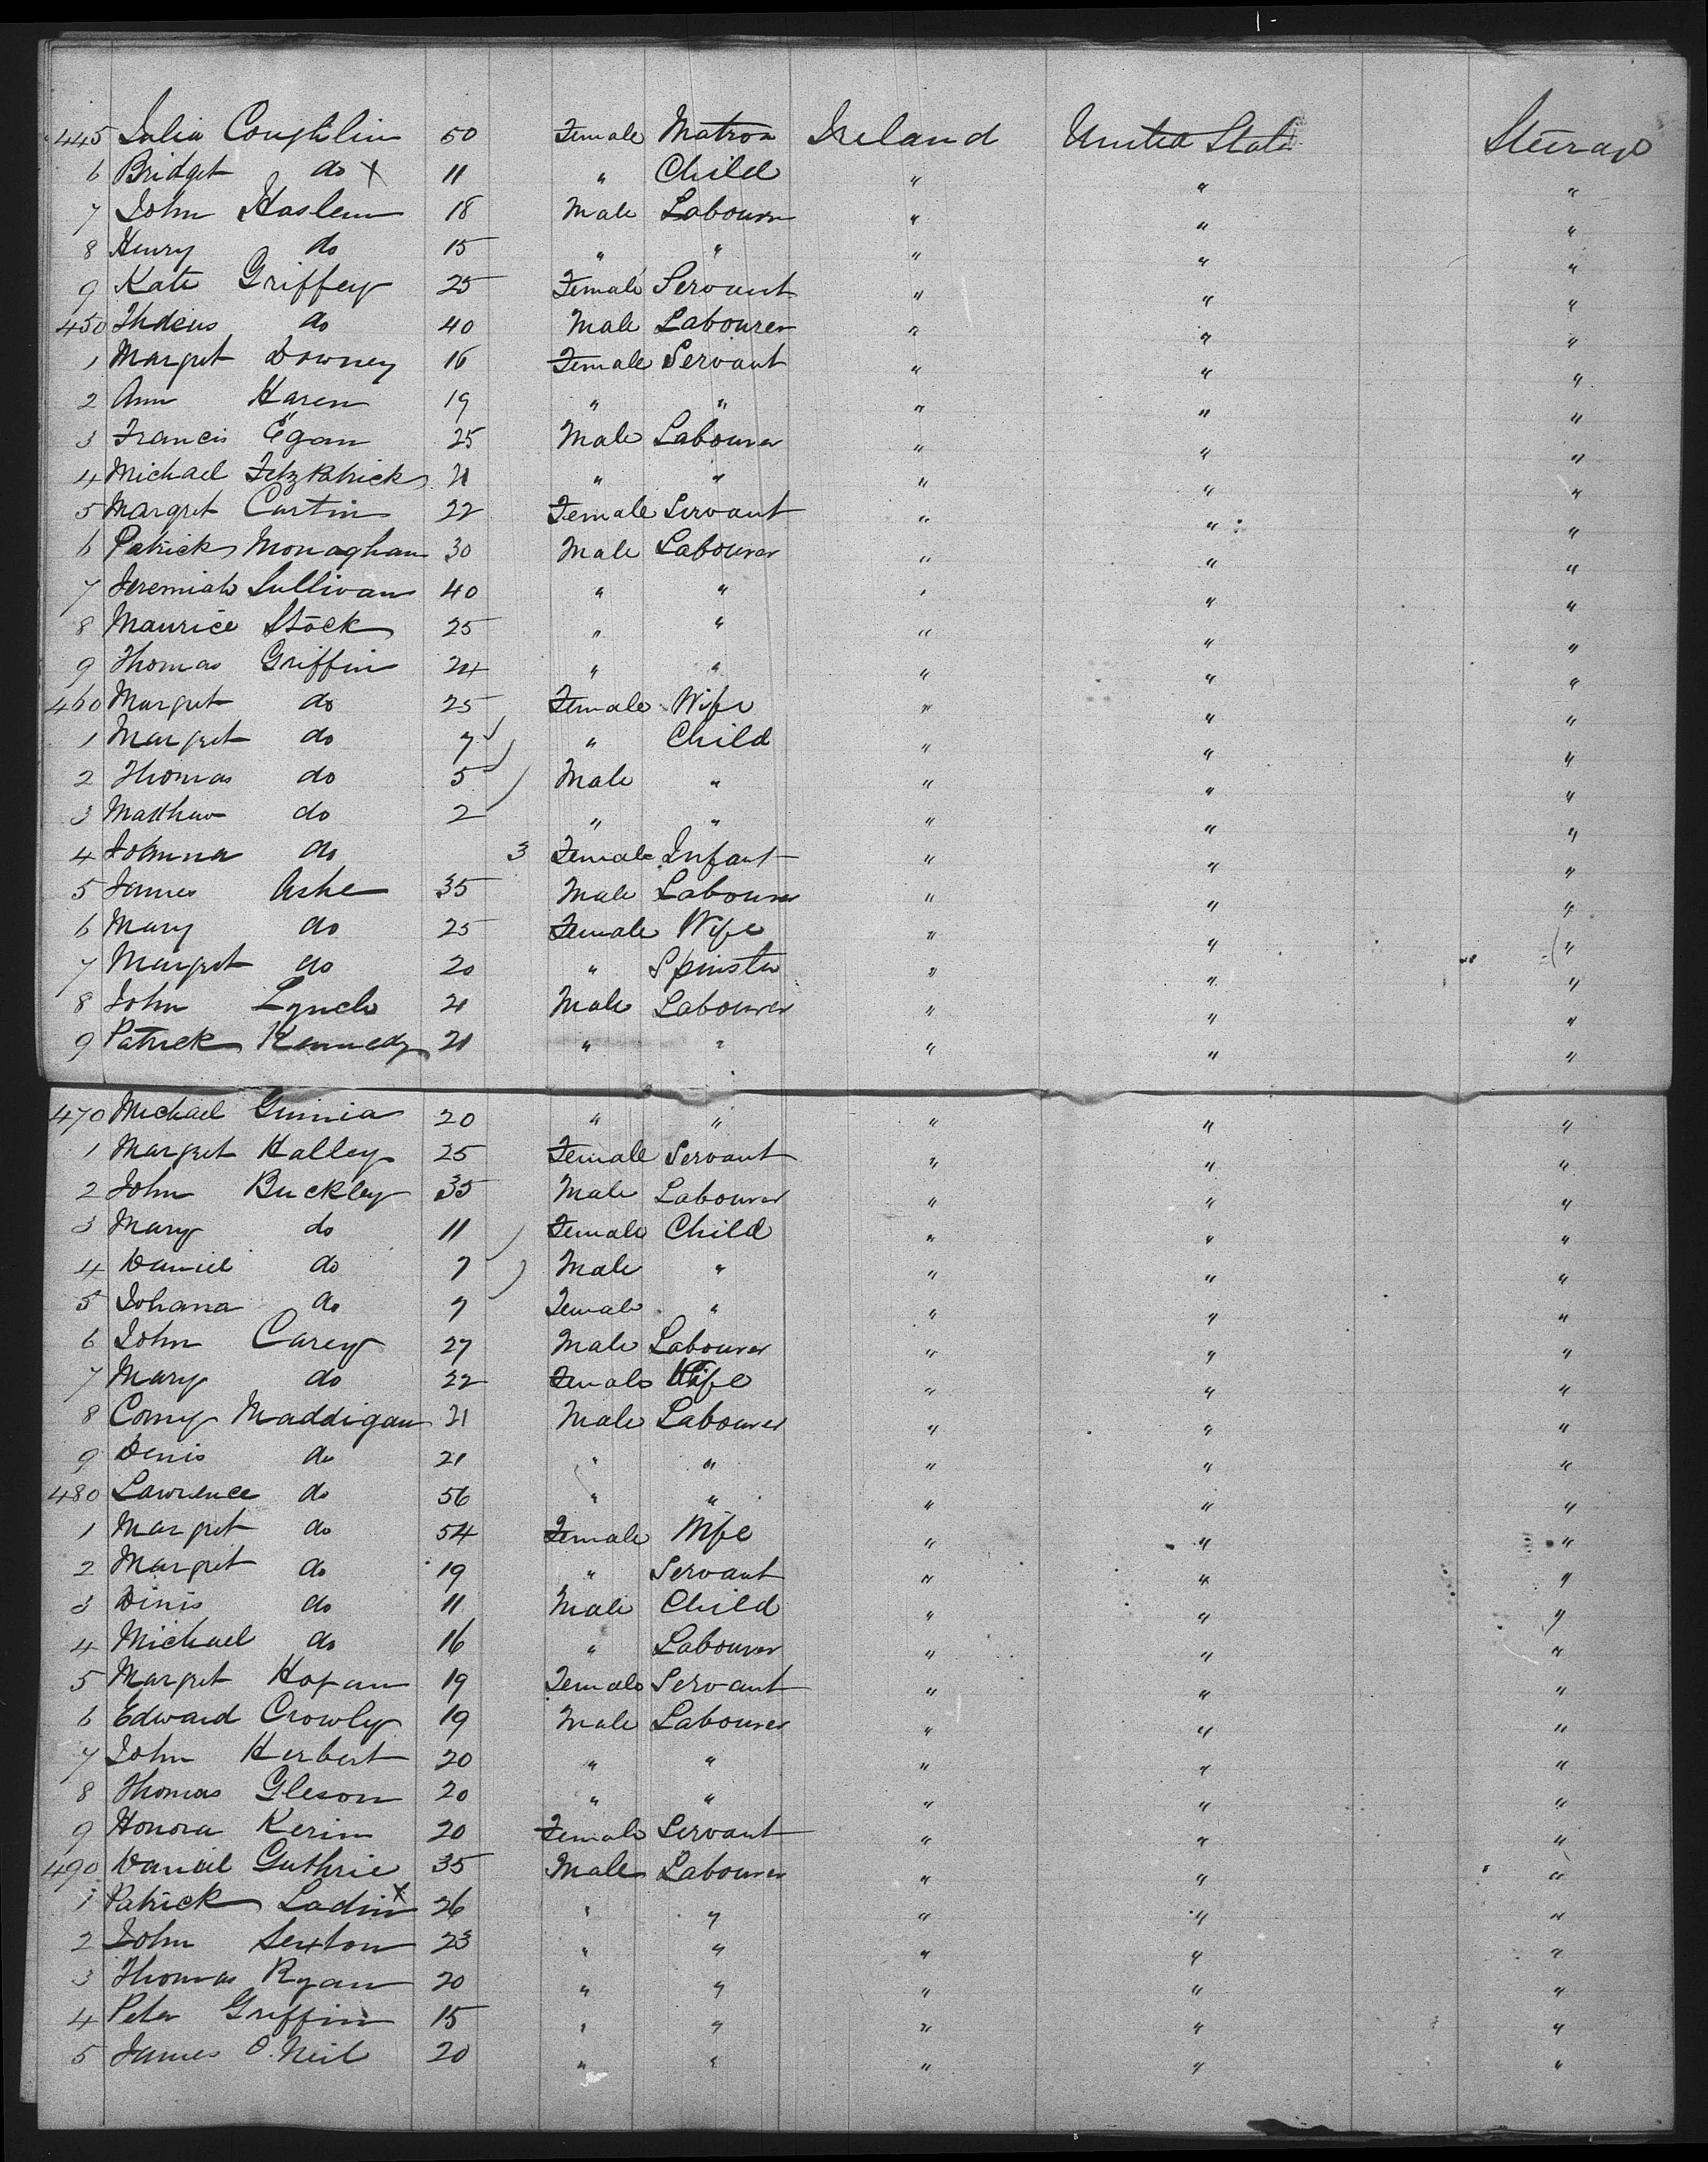 445 Julia Coughlin 50 Female Matron Ireland United State Steerage
6 Bridget do x 11 " Child " " "
7 John Haslem 18 Male Labourer " " "
8 Henry do 15 " " " " "
9 Kate Griffey 25 Female Servant " " "
450 do 40 Male Labourer " " "
1 Margret Downey 16 Female Servant " " "
2 Ann Haren 19 " " " " "
3 Francis Egan 25 Male Labourer " " "
4 Michael Fitzpatrick 21 " " " " "
5 Margret Curtin 22 Female Servant " " "
6 Patrick Monaghan 30 Male Labourer " " "
7 Jeremiah Sullivan 40 " " " " "
8 Maurice Stack 25 " " " " "
9 Thomas Griffin 24 " " " " "
460 Margret do 25 Female Wife " " "
1 Margret do 7 " Child " " "
2 Thomas do 5 Male " " " "
3 Matthew do 2 " " " " "
4 Johanna do 3 Female Infant " " "
5 James Ashe 35 Male Labourer " " "
6 Mary do 25 Female Wife " " "
7 Margret do 20 " Spinster " " "
8 John Lynch 21 Male Labourer " " "
9 Patrick Kennedy 21 " " " " "
470 Michael 20 " " " " "
1 Margret Halley 25 Female Servant " " "
2 John Buckley 35 Male Labourer " " "
3 Mary do 11 Female Child " " "
4 Daniel do 7 Male " " " "
5 Johana do 7 Female " " " "
6 John Carey 27 Male Labourer " " "
7 Mary do 22 Female Wife " " "
8 Corny Maddigan 21 Male Labourer " " "
9 Denis do 21 " " " " "
480 Lawrence do 56 " " " " "
1 Margret do 54 Female Wife " " "
2 Margret do 19 " Servant " " "
3 Dinis do 11 Male Child " " "
4 Michael do 16 " Labourer " " "
5 Margret Hogan 19 Female Servant " " "
6 Edward Crowly 19 Male Labourer " " "
7 John Herbert 20 " " " " "
8 Thomas Gleson 20 " " " " "
9 Honora Kerin 20 Female Servant " " "
490 Daniel Guthrie 35 Male Labourer " " "
1 Patrick Ladin x 26 " " " " "
2 John Sexton 23 " " " " "
3 Thomas Ryan 20 " " " " "
4 Peter Griffin 15 " " " " "
5 James O.Neil 20 " " " " "